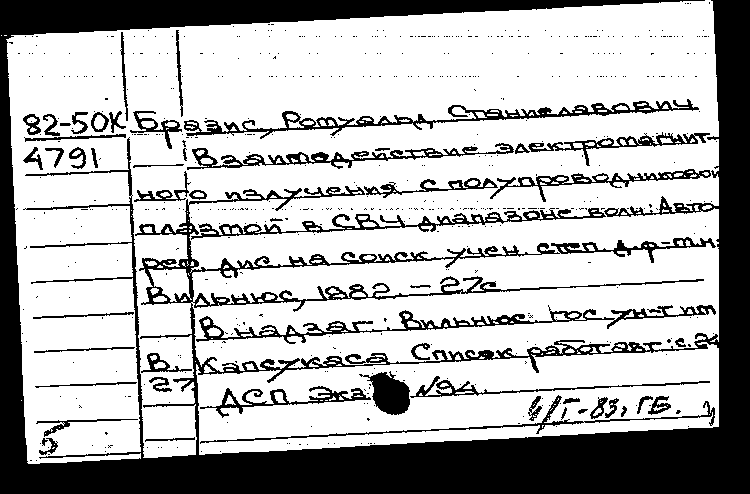 82-50К Бразис, Ромуальд Станиславович
4791 Взаимодействие электромагнит-
ного излучения с полупроводниковой
плазмой в СВЧ диапазоне волн: Авто-
реф. дис. на соиск. учен. степ. д.ф-м.н.
Вильнюс, 1982. – 27с
В надзаг: Вильнюс. гос. ун-т им
В. Капсукаса Список работ авт: с. 24
27 ДСП Экз №94.
4/I-83, ГБ.
5